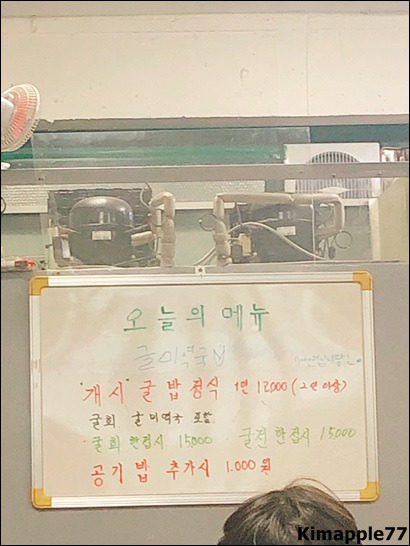 오늘의 메뉴
굴미역국밥
"개시" 굴밥정식 1인 12,000 (2인 이상)
굴회 굴미역국 포함
·굴회 한접시 15,000 ·굴전 한접시 15,000
공기밥 추가시 1.000원
Kimapple77